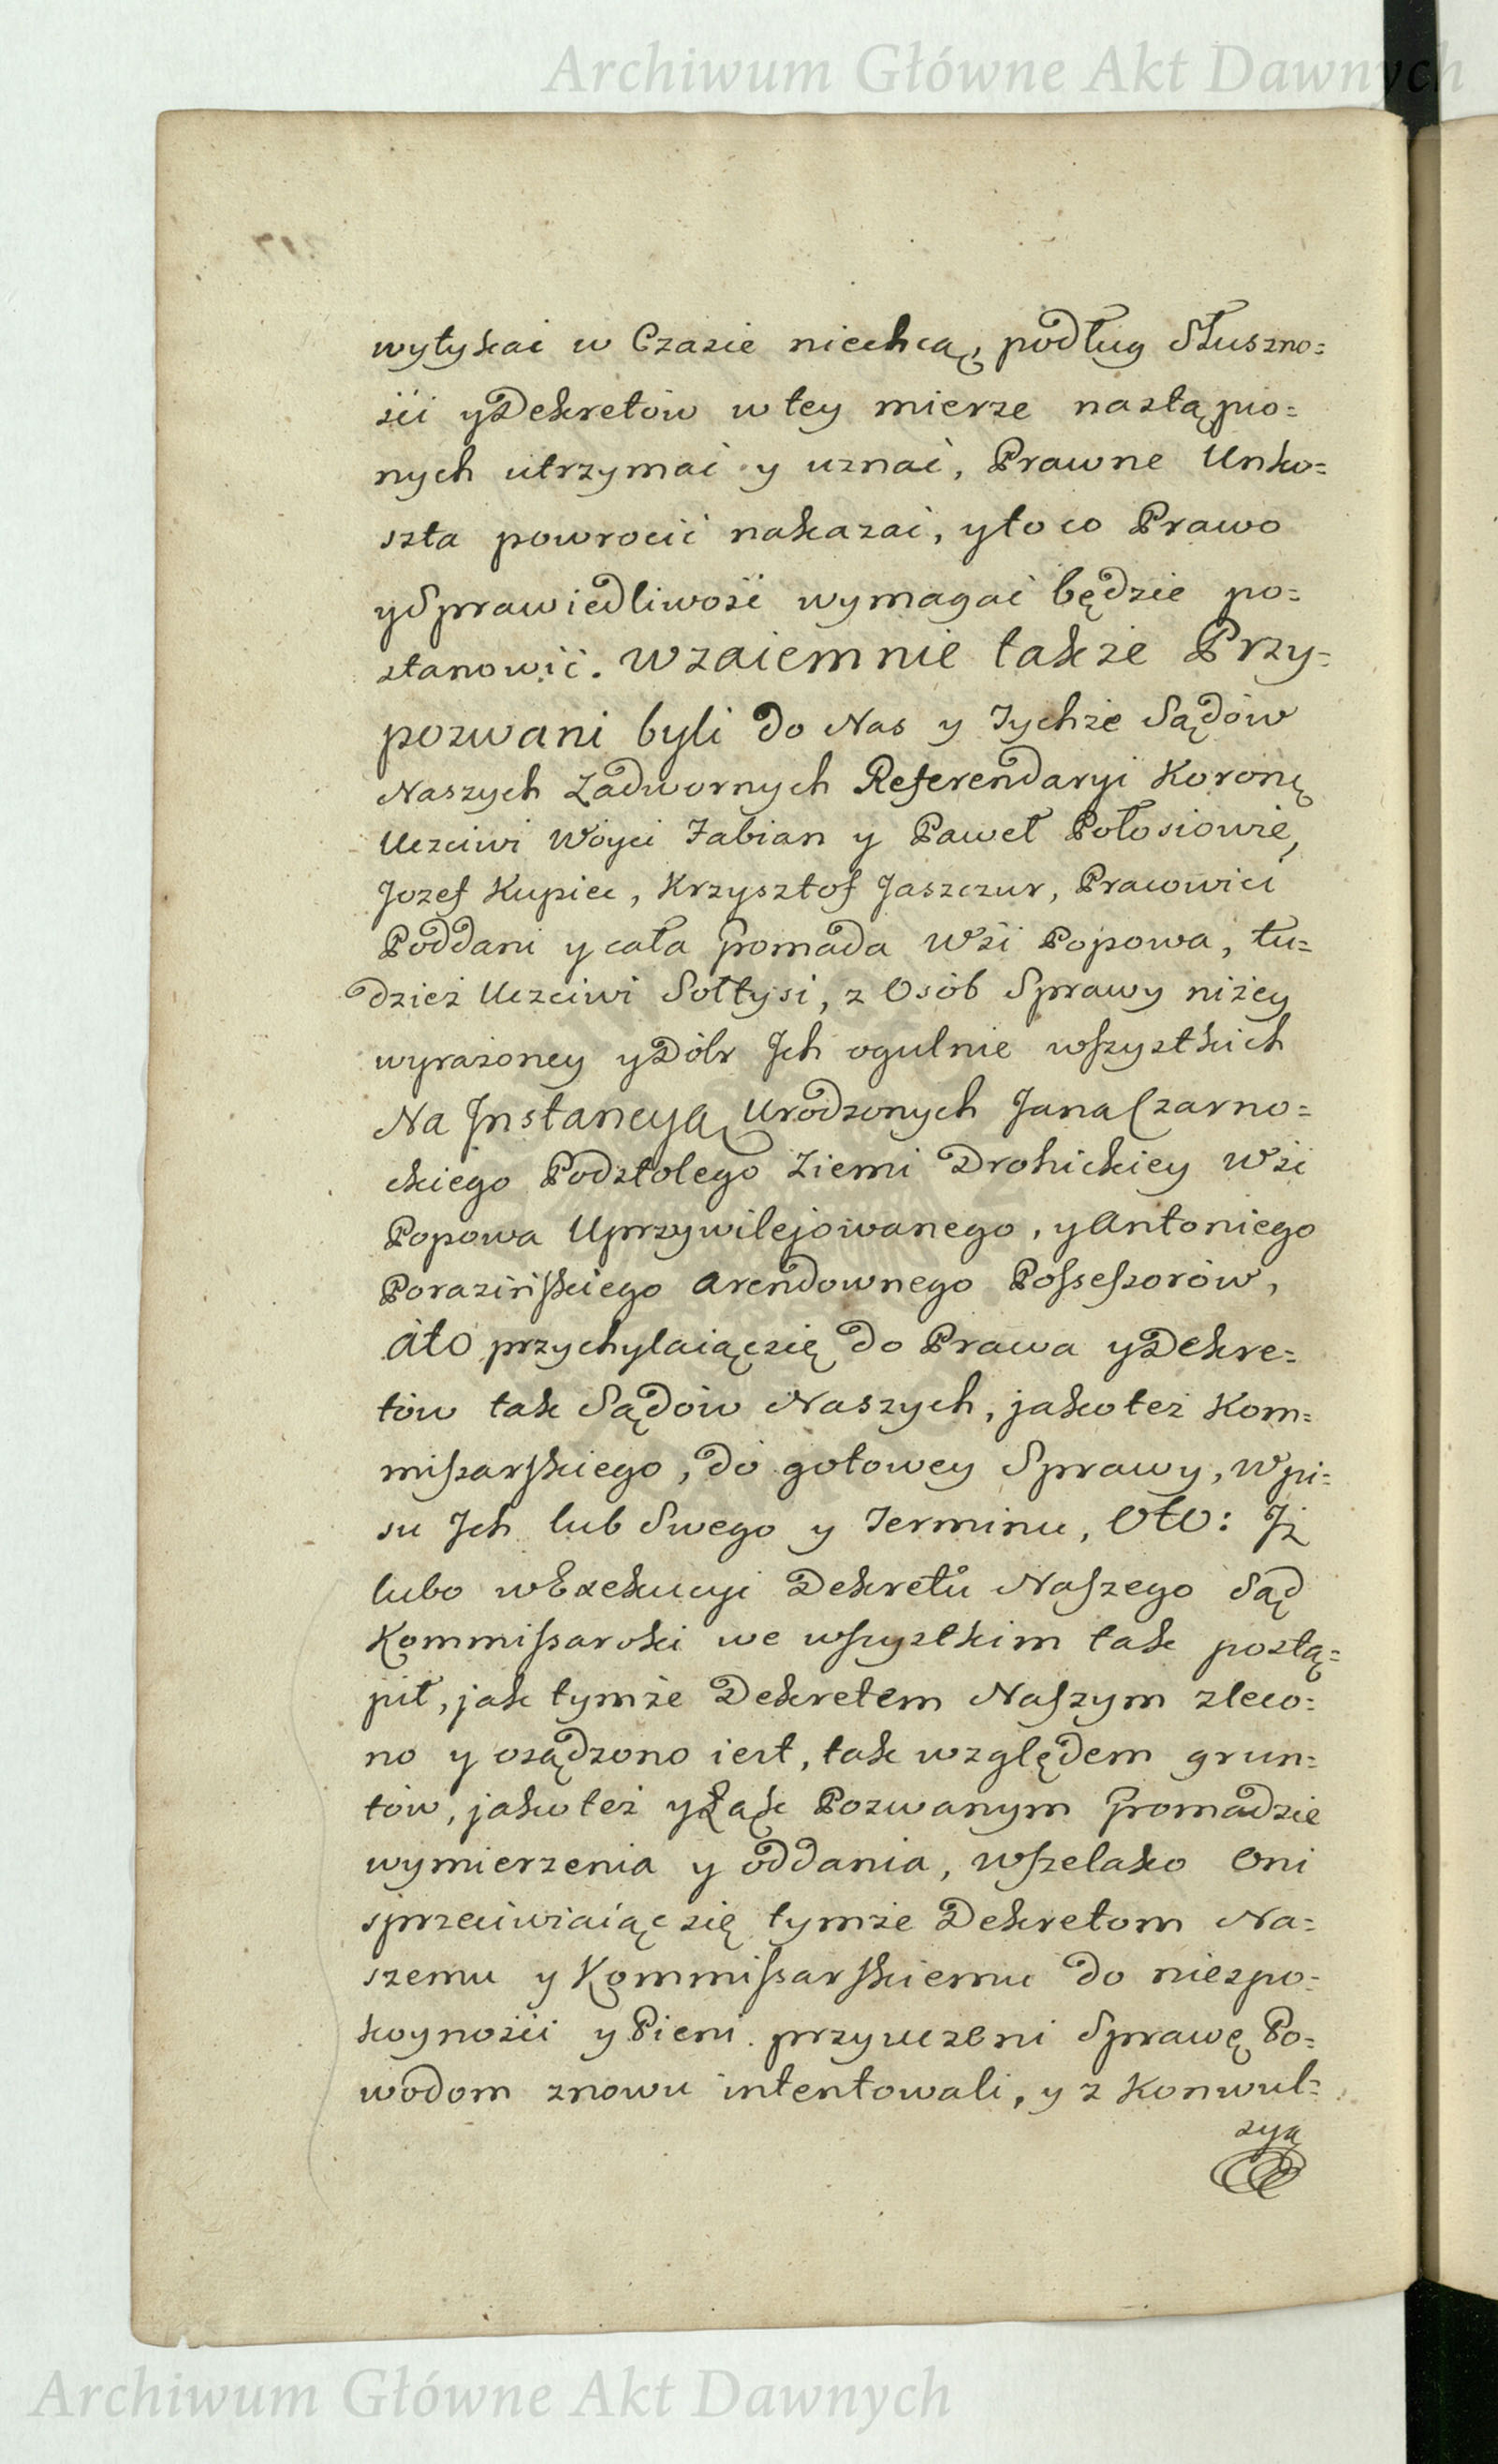 Archiwum Główne Akt Dawnych
wytykać w Czasie niechcą, podług Słuszno=
ści y Dekretów w tey mierze nastąpio=
nych utrzymać y uznać, Prawne Unko=
szta powrocić nakazać, y to co Prawo
y Sprawiedliwość wymagać będzie po=
stanowić. Wzaiemnie także Przy=
pozwani byli do Nas y Tychże Sądów
Naszych Zadwornych Referendaryi Koronę
Uczciwi Woyci Fabian y Paweł Połosiowie,
Jozef Kupiec, Krzysztof Jaszczur, Pracowici
Poddani y cała Gromada Wsi Popowa, tu=
dzież Uczciwi Sołtysi, z Osób Sprawy niżey
wyrażoney y Dóbr Jch ogulnie wszystkich
Na Jnstancyą Urodzonych Jana Czarno=
ckiego Podstolego Ziemi Drohickiey Wsi
Popowa Uprzywilejowanego, y Antoniego
Porazińskiego Arendownego Possessorów,
Ato przychylaiąc się do Prawa y Dekre=
tów tak Sądów Naszych, jako też Kom=
missarskiego, do gotowey Sprawy, Wpi=
su Jch lub Swego y Terminu, Oto: Jż
lubo w Exekucyi Dekretu Naszego Sąd
Kommissarski we wszystkim tak postą=
pił, jak tymże Dekretem Naszym zleco=
no y osądzono iest, tak względem grun=
tów, jako też y Łąk Pozwanym Gromadzie
wymierzenia y oddania, wszelako Oni
sprzeciwiaiąc się tymże Dekretom Na=
szemu y Kommissarskiemu do niespo=
koyności y Pieni przyuczeni Sprawę Po=
wodom znowu intentowali, y z Konwul=
syą
Archiwum Główne Akt Dawnych